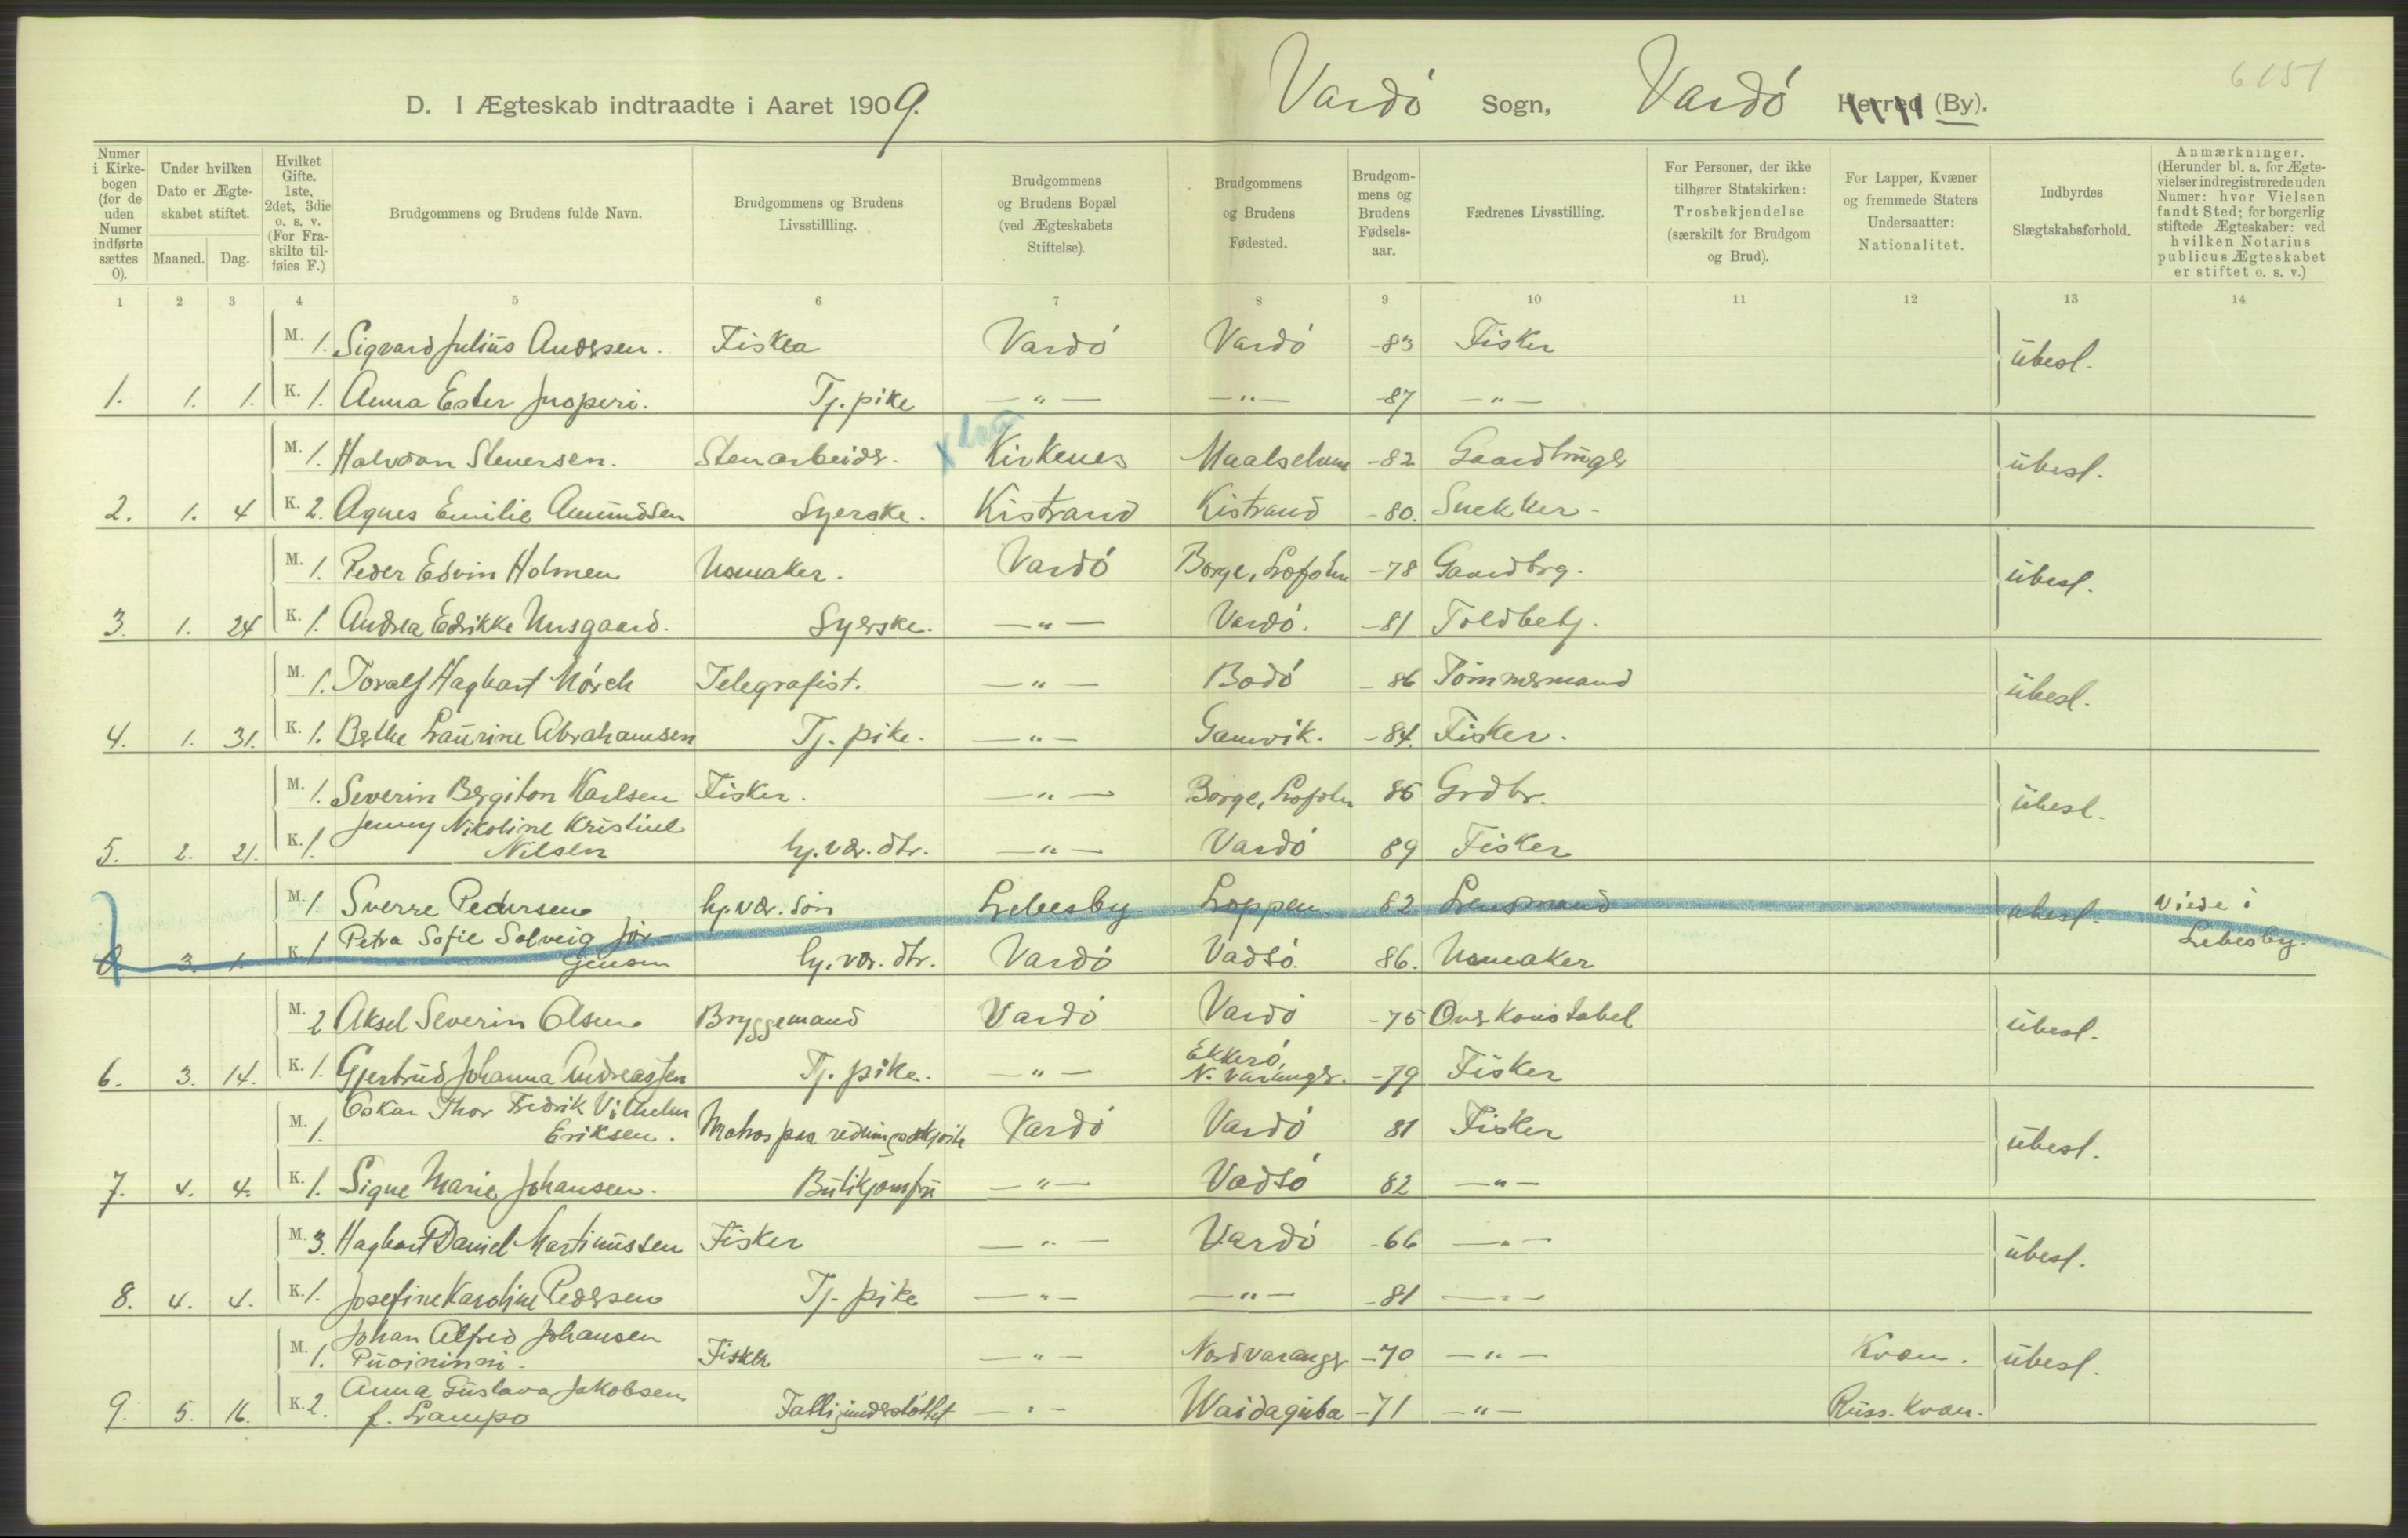 6151
D. I Ægteskab indtraadte i Aaret 1909. Vardö Sogn, Vardö Herred (By).
Numer i Kirkebogen (for de uden Numer indførte sættes 0).
Under hvilken Dato er Ægteskabet stiftet.
Maaned. Dag.
Hvilket Gifte. 1ste, 2det, 3die o. s. v. (For Fraskilte tilføies F.)
Brudgommens og Brudens fulde Navn.
Brudgommens og Brudens Livsstillling.
Brudgommens og Brudens Bopæl (ved Ægteskabets Stiftelse).
Brudgommens og Brudens Fødested.
Brudgommens og Brudens Fødselsaar.
Fædrenes Livsstilling.
For Personer, der ikke tilhører Statskirken: Trosbekjendelse (særskilt for Brudgom og Brud).
For Lapper, Kvæner og fremmede Staters Undersaatter: Nationalitet.
Indbyrdes Slægtskabsforhold.
Anmærkninger. (Herunder bl. a. for Ægtevielser indregistrerede uden Numer: hvor Vielsen fandt Sted; for borgerlig stiftede Ægteskaber: ved hvilken Notarius publicus Ægteskabet er stiftet o. s. v.)
1 2 3 4 5 6 7 8 9 10 11 12 13 14
M. 1. Sigvard Julius Andersen. Fisker Vardö Vardö -83 Fisker ubesl.
1. 1. 1. K. 1. Anna Ester Juoperi. Tj. pike — " — — " — -87 — " —
M. 1. Halvdan Steversen. Stenarbeider. Kirkenes Maalselven -82 Gaardbruger ubesl.
2. 1. 4 K. 2. Agnes Emilie Amundsen Syerske. Kistrand Kistrand -80. Snekker.
M. 1. Peder Edvin Holmen Urmaker. Vardö Borge, Lofoten -78 Gaardbrg. ubesl.
3. 1. 24 K. 1. Andrea Edrikke Ursgaard. Syerske. — " — Vardö. -81 Toldbetj.
M. 1. Toralf Hagbart Mörch Telegrafist. — " — Bodö -86 Tömmermand ubesl.
4. 1. 31. K. 1. Berthe Laurine Abrahamsen Tj. pike. — " — Gamvik. -84. Fisker.
M. 1. Severin Bergiton Karlsen Fisker. — " — Borge, Lofoten 86 Grdbr. ubesl.
Jenny Nikoline Kristine
5. 2. 21. K. 1. Nilsen hj. vær. dtr. — " — Vardö 89 Fisker
M. 1. Sverre Pedersen hj. vær. sön Lebesby Loppen 82 Lensmand ubesl. Viede i
Petra Sofie Solveig Jör- Lebesby.
0. 3. 1. K. 1. gensen hj. vær. dtr. Vardö Vadsö. 86. Urmaker
M. 2 Aksel Severin Olsen Bryggemand Vardö Vardö -75 Overkonstabel ubesl.
Ekkerö,
6. 3. 14. K. 1. Gjertrud Johanna Andreassen Tj. pike. — " — N. Varanger. -79 Fisker
Oskar Thor Fredrik Vilhelm
M. 1. Eriksen. Matros paa redningsskjöite Vardö Vardö 81 Fisker ubesl.
7. 4. 4. K. 1. Signe Marie Johansen. Butikjomfru — " — Vadsö 82 — " —
M. 3. Hagbart Daniel Martinussen Fisker — " — Vardö -66 — " — ubesl.
8. 4. 4. K. 1. Josefine Karoline Pedersen Tj. pike — " — — " — -81 — " —
Johan Alfred Johansen
M. 1. Puoininni. Fisker — " — Nordvaranger -70 — " — Kvæn. ubesl.
Anna Gustava Jakobsen
9. 5. 16. K. 2. f. Lampo Fattigunderstöttet — " — Waidaguba -71 — " — Russ. kvæn.